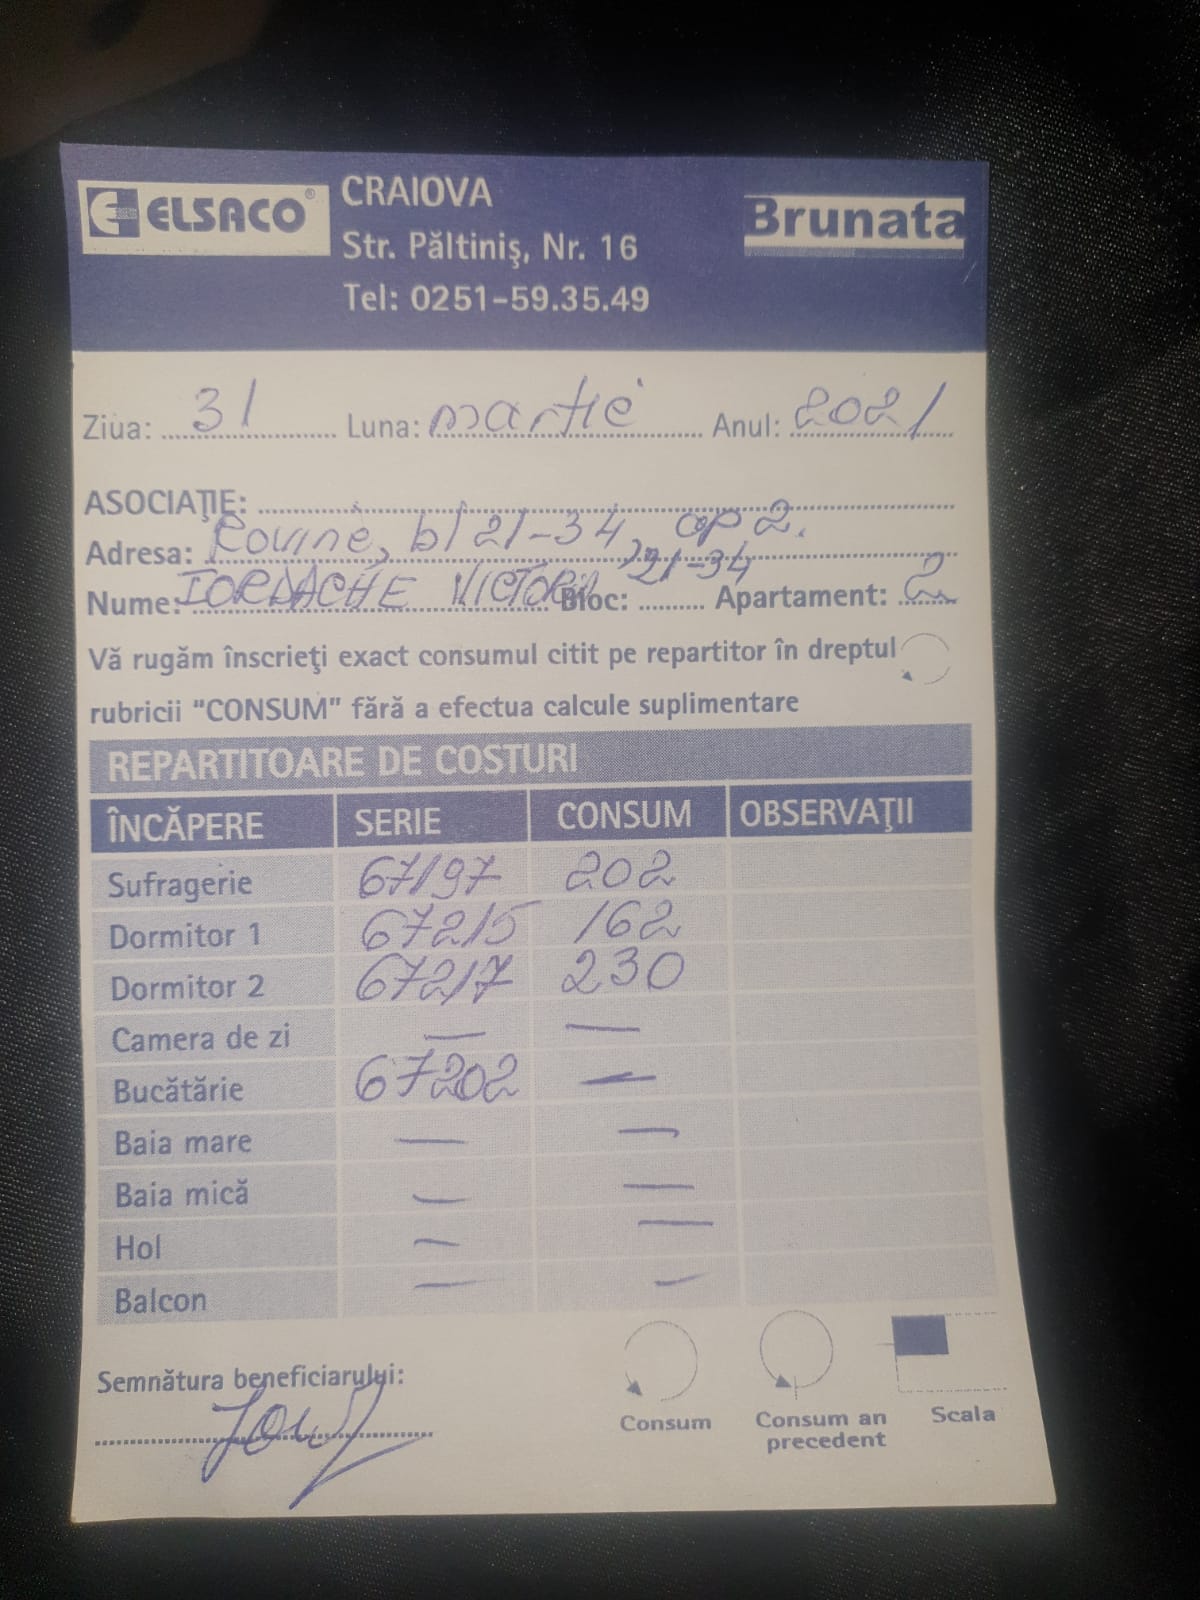 ELSACO®
CRAIOVA
Str. Păltiniş, Nr. 16
Tel: 0251-59.35.49
Brunata
Ziua: 31 Luna: martie Anul: 2021
ASOCIAŢIE:
Adresa: Rovine, bl 21-34, ap 2.
Nume: IORDACHE VICTORIA Bloc: 21-34 Apartament: 2
Vă rugăm înscrieţi exact consumul citit pe repartitor în dreptul
rubricii "CONSUM" fără a efectua calcule suplimentare
REPARTITOARE DE COSTURI
ÎNCĂPERE SERIE CONSUM OBSERVAŢII
Sufragerie 67197 202
Dormitor 1 67215 162
Dormitor 2 67217 230
Camera de zi — —
Bucătărie 67202 —
Baia mare — —
Baia mică — —
Hol — —
Balcon — —
Semnătura beneficiarului:
Consum
Consum an
precedent
Scala